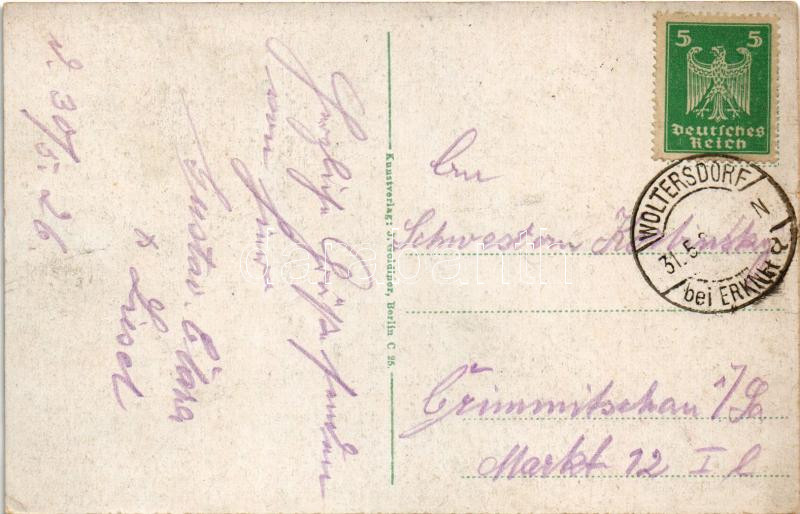 d. 30/5. 26.
Herzliche Grüße senden
Gustav. Clara
& Liesel
Kunstverlag: J. Goldiner, Berlin C 25.
5 5
Deutsches
Reich
WOLTERSDORF
31.5.
bei ERKNER
An
Schwestern
Crimmitschau i/Sa
Markt 12 I l